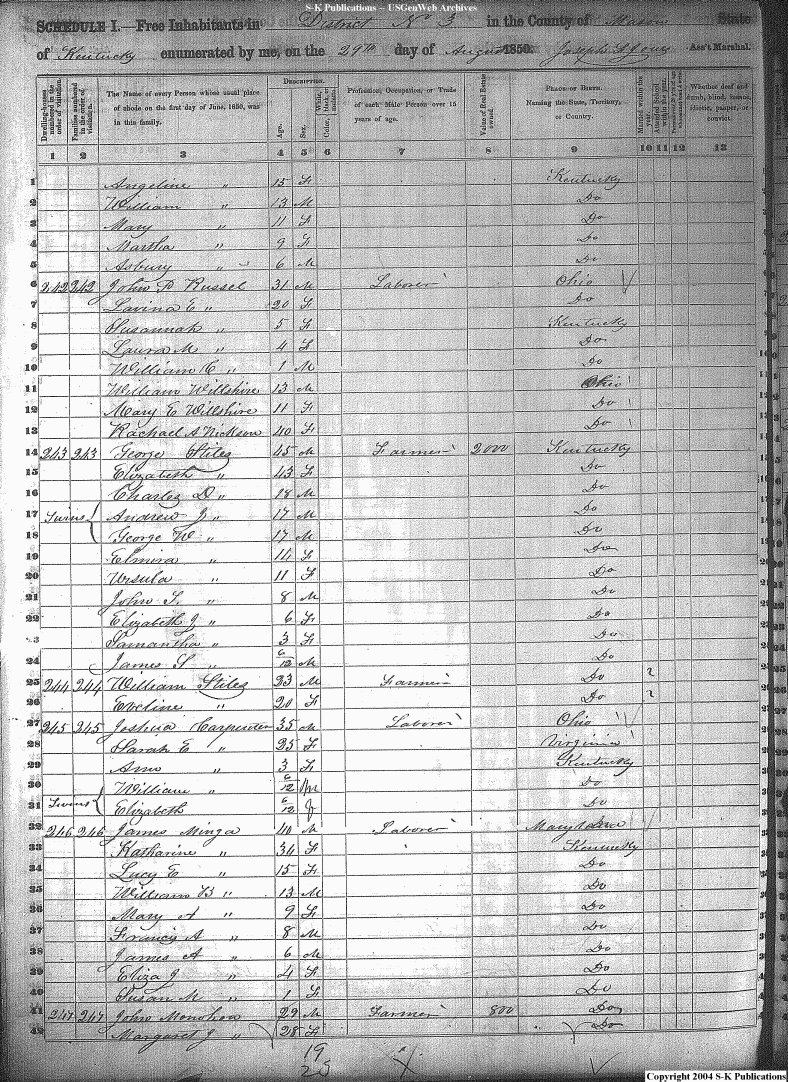 S-K Publications -- USGenWeb Archives
SCHEDULE I. Free Inhabitants in District No 3 in the County of Mason State
of Kentucky enumerated by me, on the 29th day of August 1850. Ass't Marshal.
DESCRIPTION.
Dwelling-houses numbered in the order of visitation.
Families numbered in the order of visitation.
The Name of every Person whose usual place of abode on the first day of June, 1850, was in this family.
Age.
Sex.
White, black, or mulatto. Color,
Profession, Occupation, or Trade of each Male Person over 15 years of age.
Value of Real Estate owned.
PLACE OF BIRTH. Naming the State, Territory, or Country.
Married within the year.
Attended School within the year.
Whether deaf and dumb, blind, insane, idiotic, pauper, or convict.
1 2 3 4 5 6 7 8 9 10 11 12 13
1 Angeline " 15 F Kentucky
2 William " 13 M Do
3 Mary " 11 F Do
4 Martha " 9 F Do
5 Asbury " 6 M Do
6 242 242 John P Russel 31 M Laborer Ohio
7 Lavina E " 20 F Do
8 Susannah " 5 F Kentucky
9 Laura M " 4 F Do
10 William C " 1 M Do
11 William Willshire 13 M Ohio
12 Mary E Willshire 11 F Do
13 Rachael A Nickson 40 F Do
14 243 243 George Stiles 45 M Farmer 2000 Kentucky
15 Elizabeth " 43 F Do
16 Charles D " 18 M Do
17 Twins Andrew J " 17 M Do
18 George W " 17 M Do
19 Elmira " 14 F Do
20 Ursula " 11 F Do
21 John S. " 8 M Do
22 Elizabeth J " 6 F Do
3 Samantha " 3 F Do
24 James S " 6/12 M Do
25 244 244 William Stiles 23 M Farmer Do
26 Eveline " 20 F Do
27 245 245 Joshua Carpenter 35 M Laborer Ohio
28 Sarah E " 25 F Virginia
29 Ann " 3 F Kentucky
30 William " 6/12 M Do
31 Twins Elizabeth 6/12 f Do
32 246 246 James Minga 40 M Laborer Maryland
33 Katharine " 34 F Kentucky
34 Lucy E " 15 F Do
35 William B " 13 M Do
36 Mary A " 9 F Do
37 Francis A " 8 M Do
38 James A " 6 M Do
39 Eliza J " 4 F Do
40 Susan M " 1 F Do
41 247 247 John Monohon 29 M Farmer 800 Do
42 Margaret J " 28 F Do
19
23
Copyright 2004 S-K Publications